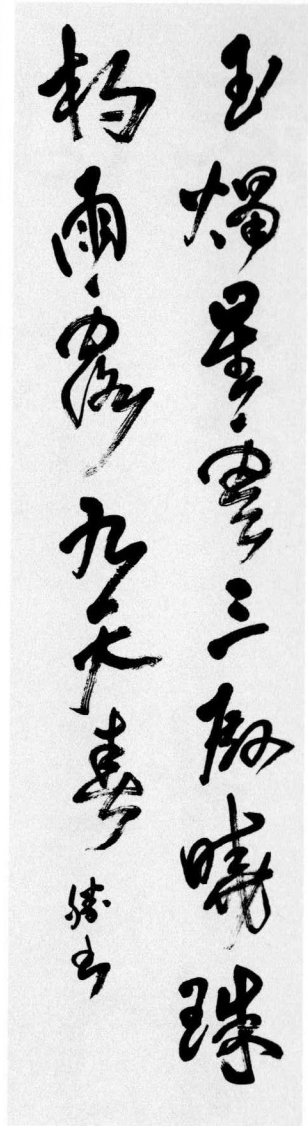 玉燭星雲三殿曉珠
杓雨露九天春
勝書